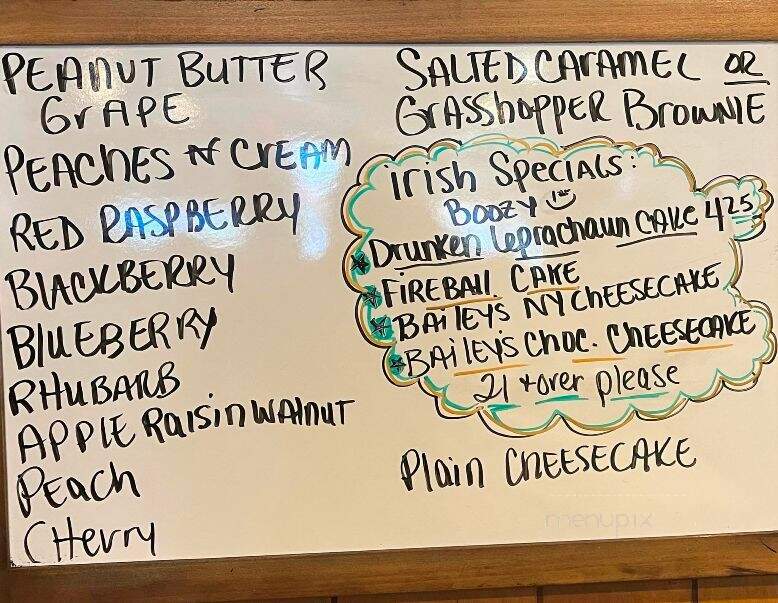 PEANUT BUTTER
GrAPE
PEACHES N CrEAM
RED RASPBERRY
BlACKBERRY
BlUEBERRY
RHUBARB
APPlE RaisinWAlnUT
PEach
CHerry
SALTED CArAMEL OR
GrASShOPPER BrOWNIE
irish SpeciALs:
BOOZY
Drunken leprachaun CAKe 425
FiREBAll CAKE
BAilEYS NYChEESECAKE
BAilEYS ChOC. ChEESECAKE
21 + over please
Plain CHEESECAKE
menupix